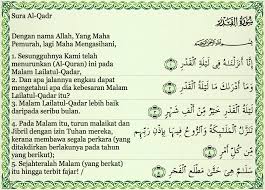 Sura Al-Qadr
Dengan nama Allah, Yang Maha
Pemurah, lagi Maha Mengasihani,
1. Sesungguhnya Kami telah
menurunkan (Al-Quran) ini pada
Malam Lailatul-Qadar,
2. Dan apa jalannya engkau dapat
mengetahui apa dia kebesaran Malam
Lailatul-Qadar itu?
3. Malam Lailatul-Qadar lebih baik
daripada seribu bulan.
4. Pada Malam itu, turun malaikat dan
Jibril dengan izin Tuhan mereka,
kerana membawa segala perkara (yang
ditakdirkan berlakunya pada tahun
yang berikut);
5. Sejahteralah Malam (yang berkat)
itu hingga terbit fajar! /
سُورَةُ الْقَدْرِ
إِنَّا أَنزَلْنَاهُ فِي لَيْلَةِ الْقَدْرِ
وَمَا أَدْرَاكَ مَا لَيْلَةُ الْقَدْرِ
لَيْلَةُ الْقَدْرِ خَيْرٌ مِّنْ أَلْفِ شَهْرٍ
تَنَزَّلُ الْمَلَائِكَةُ وَالرُّوحُ فِيهَا بِإِذْنِ رَبِّهِم
مِّن كُلِّ أَمْرٍ
سَلَامٌ هِيَ حَتَّىٰ مَطْلَعِ الْفَجْرِ